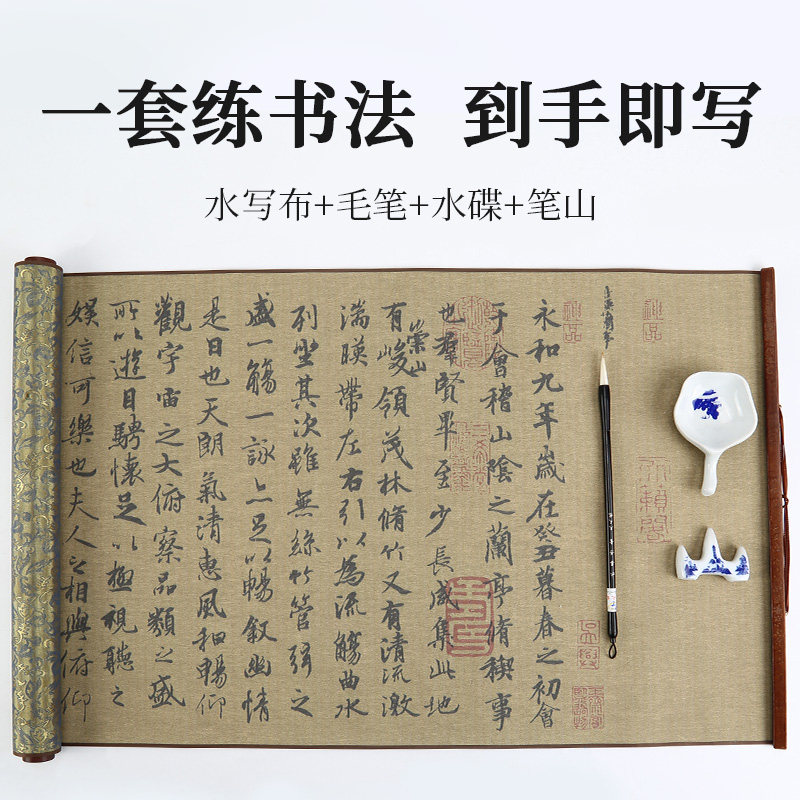 一套练书法 到手即写
水写布+毛笔+水碟+笔山
神品
永和九年歲在癸丑暮春之初會
于會稽山陰之蘭亭脩稧事
也羣賢畢至少長咸集此地
有崇山峻領茂林脩竹又有清流激
湍暎帶左右引以為流觴曲水
列坐其次雖無絲竹管弦之
盛一觴一詠亦足以暢叙幽情
是日也天朗氣清惠風和暢仰
觀宇宙之大俯察品類之盛
所以遊目騁懷足以極視聽之
娛信可樂也夫人之相與俯仰